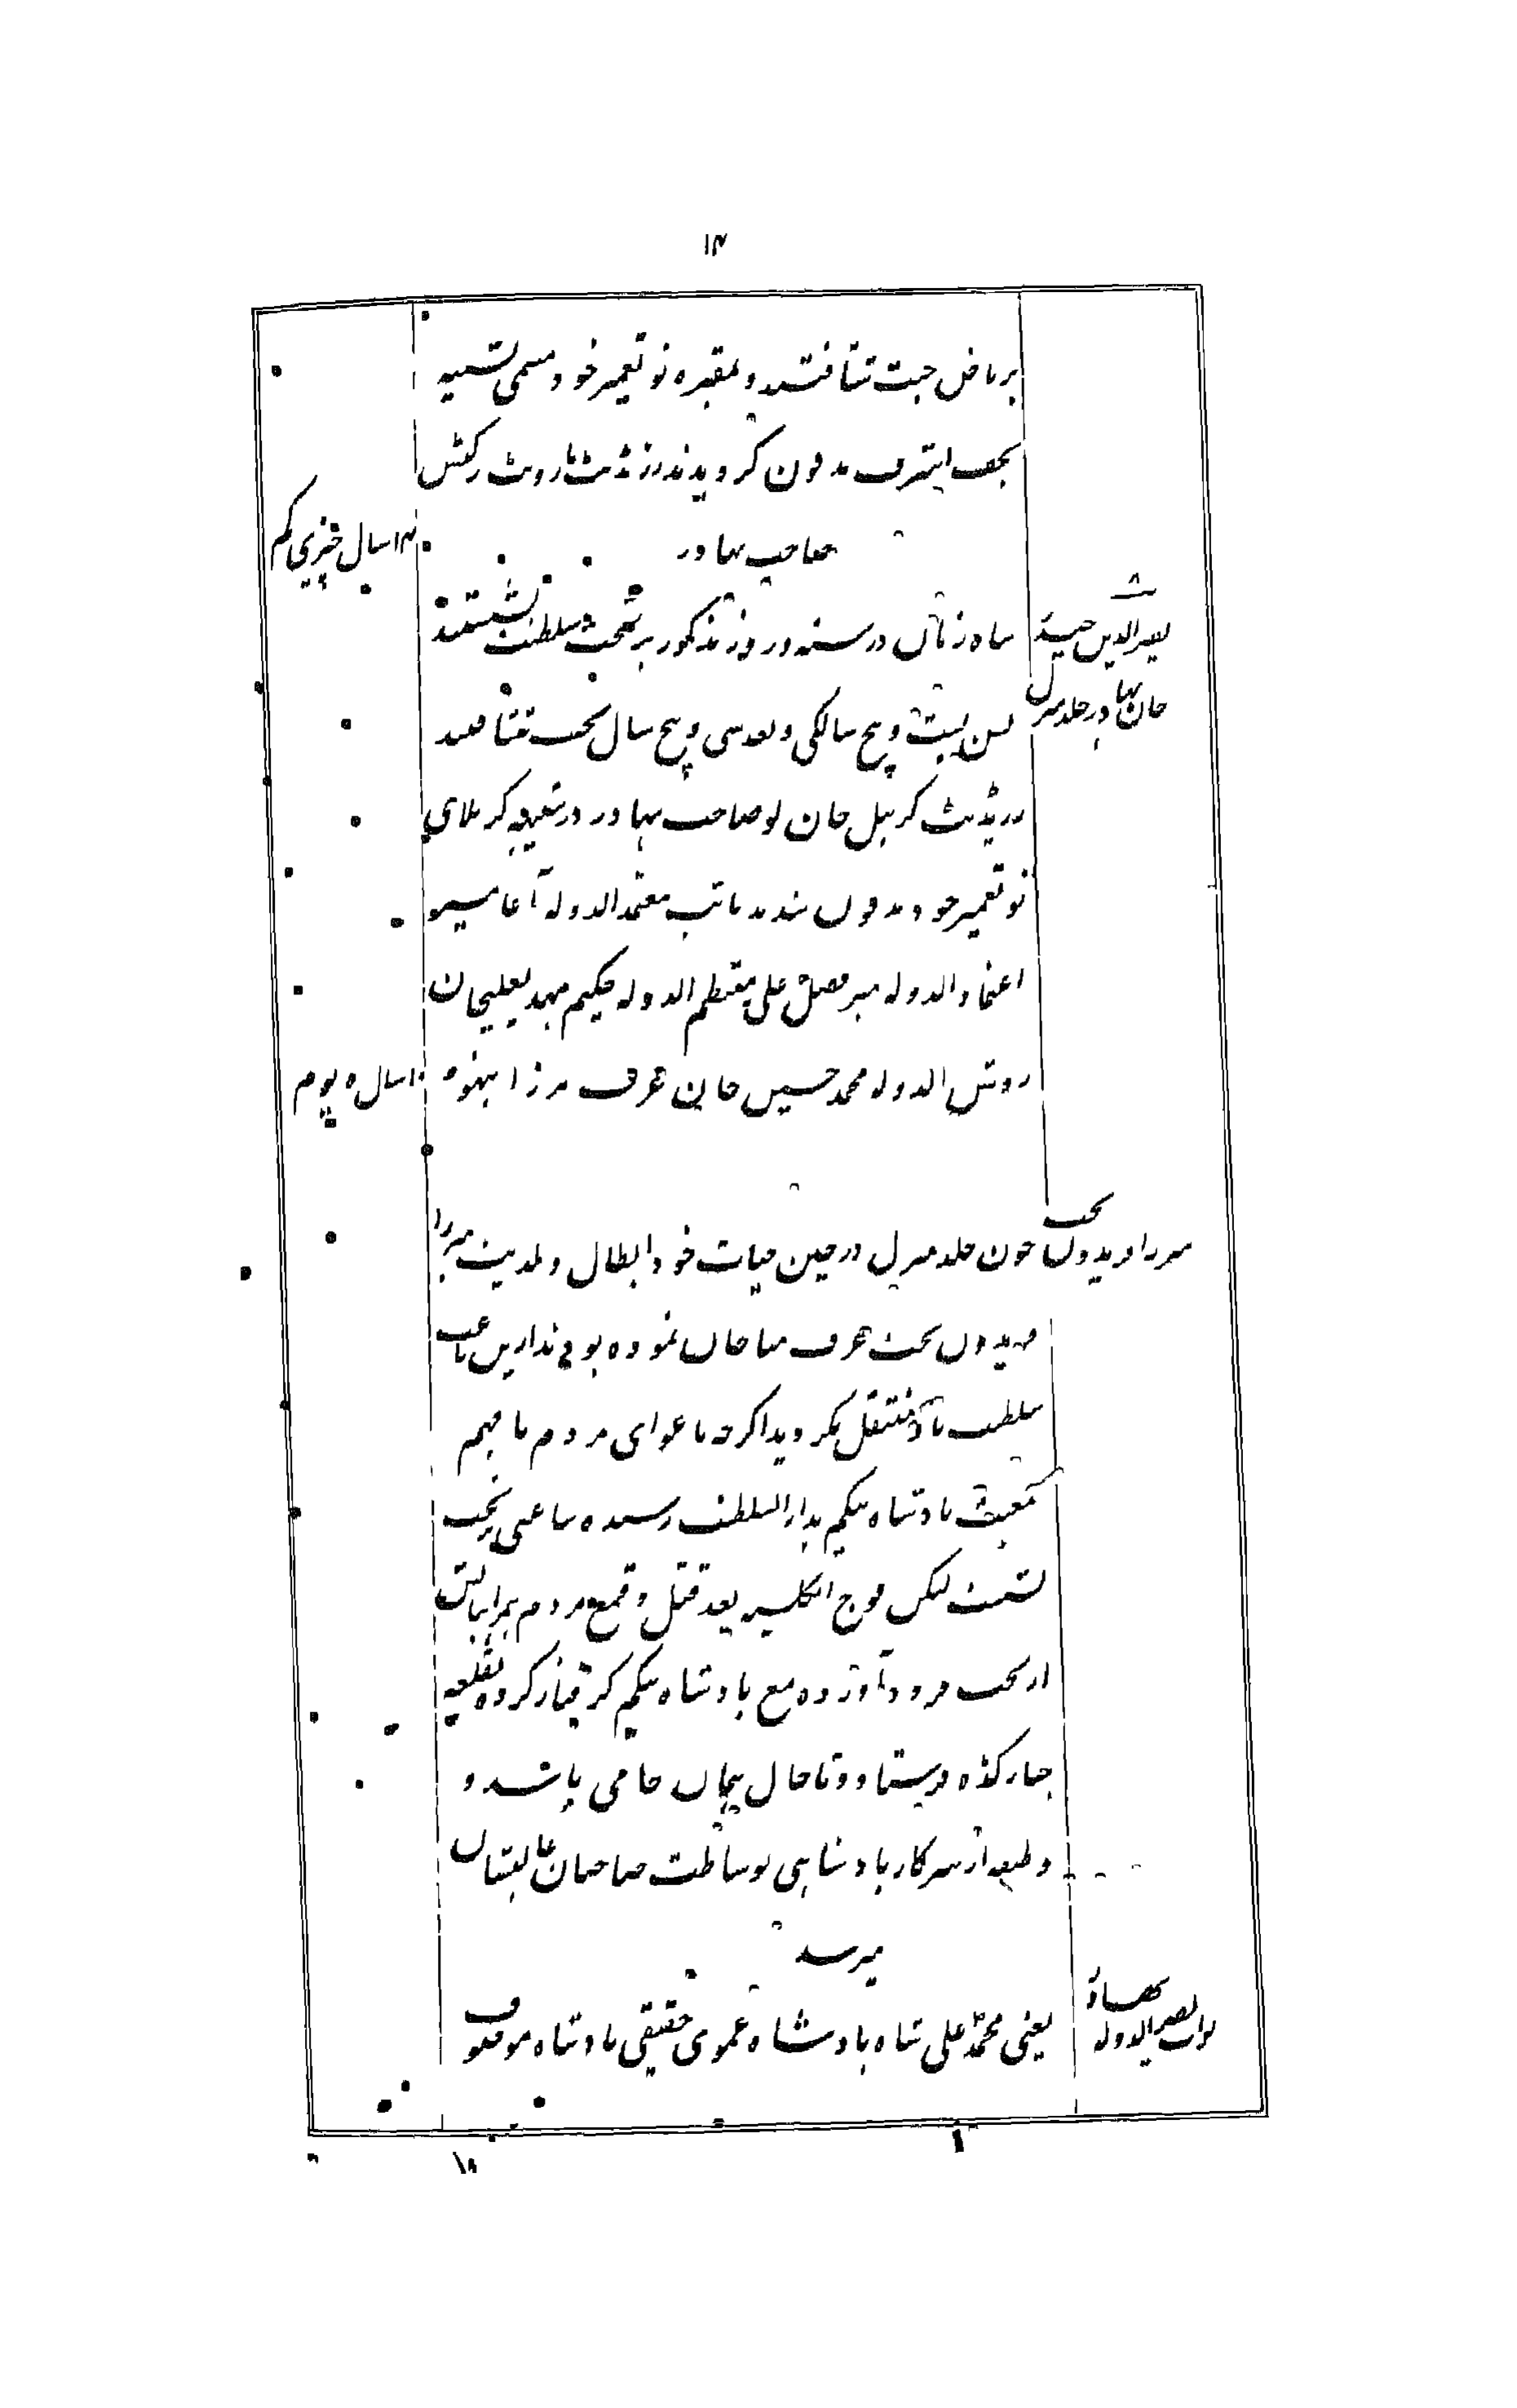 ۱۴
برياض جنت شتافتند و بمقبره نو تعمير خود مسمی تسميه
نجف اشرف مدفون گرديدند رزيڈنٹ
صاحب بهادر
۱۴ سال چيزی كم
نصير الدين حيدر
خان بهادر خلد منزل
شاه زمان در سنه و روز مذكور بر تخت سلطنت نشستند
بسن بيست و پنج سالگی و بعد سی و پنج سال بجنت شتافتند
رزيڈنٹ كرنيل جان لو صاحب بهادر در شبيهه كربلای
نو تعمير خود مدفون شدند نائب معتمد الدوله آغا مير
اعتماد الدوله مير فضل علی منتظم الدوله حكيم مهديعليخان
روشن الدوله محمد حسين خان عرف مرزا
۱۰ سال ۵ يوم
مرزا فريدون بخت
چون خلد منزل در حين حيات خود ابطال ولديت ميرزا
فريدون بخت عرف منا جان نموده بودند ازين باعث
سلطنت باو منتقل نگرديد اگرچه باغوای مردم نافهم
بمعيت بادشاه بيگم بدار السلطنت رسيده ساعتی بر تخت
نشست ليكن فوج انگليسيه بعد قتل و قمع مردم همراهيانش
از تخت فرود آورده مع بادشاه بيگم گرفتار كرده بقلعه
چنارگڈه فرستاد و تا حال بهمان جا می باشد و
وظيفه از سركار بادشاهی بوساطت صاحبان عاليشان
ميرسد
نواب نصير الدوله بهادر
يعنی محمد علی شاه بادشاه عموی حقيقی بادشاه موصوف